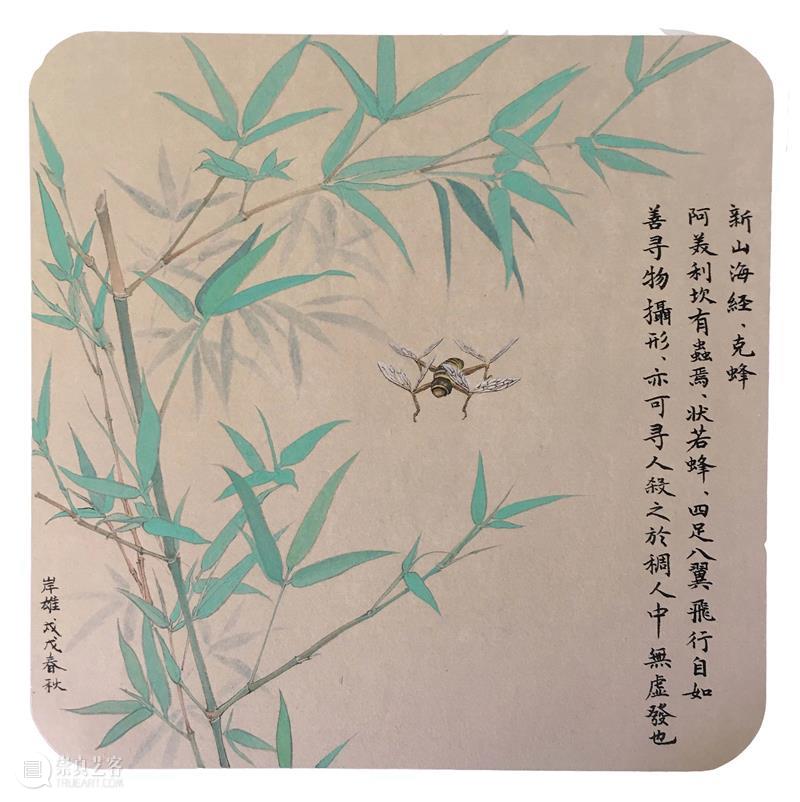 新山海経、克蜂
阿美利坎有蟲焉、状若蜂、四足八翼飛行自如
善寻物攝形、亦可寻人殺之於稠人中無虛發也
岸雄戊戌春秋
崇真艺客
TRUEART.COM